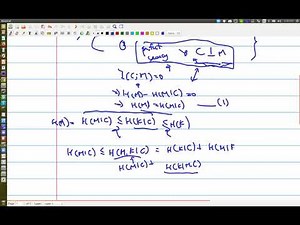 perfect secrecy → C ⊥ M
I(C;M)=0
→ H(M) - H(M|C) = 0
→ H(M) = H(M|C) — (1)
H(M) = H(M|C) ≤ H(K|C) ≤ H(K)
H(M|C) ≤ H(M,K|C) = H(K|C) + H(M|K
H(M|C) + H(K|M,C)